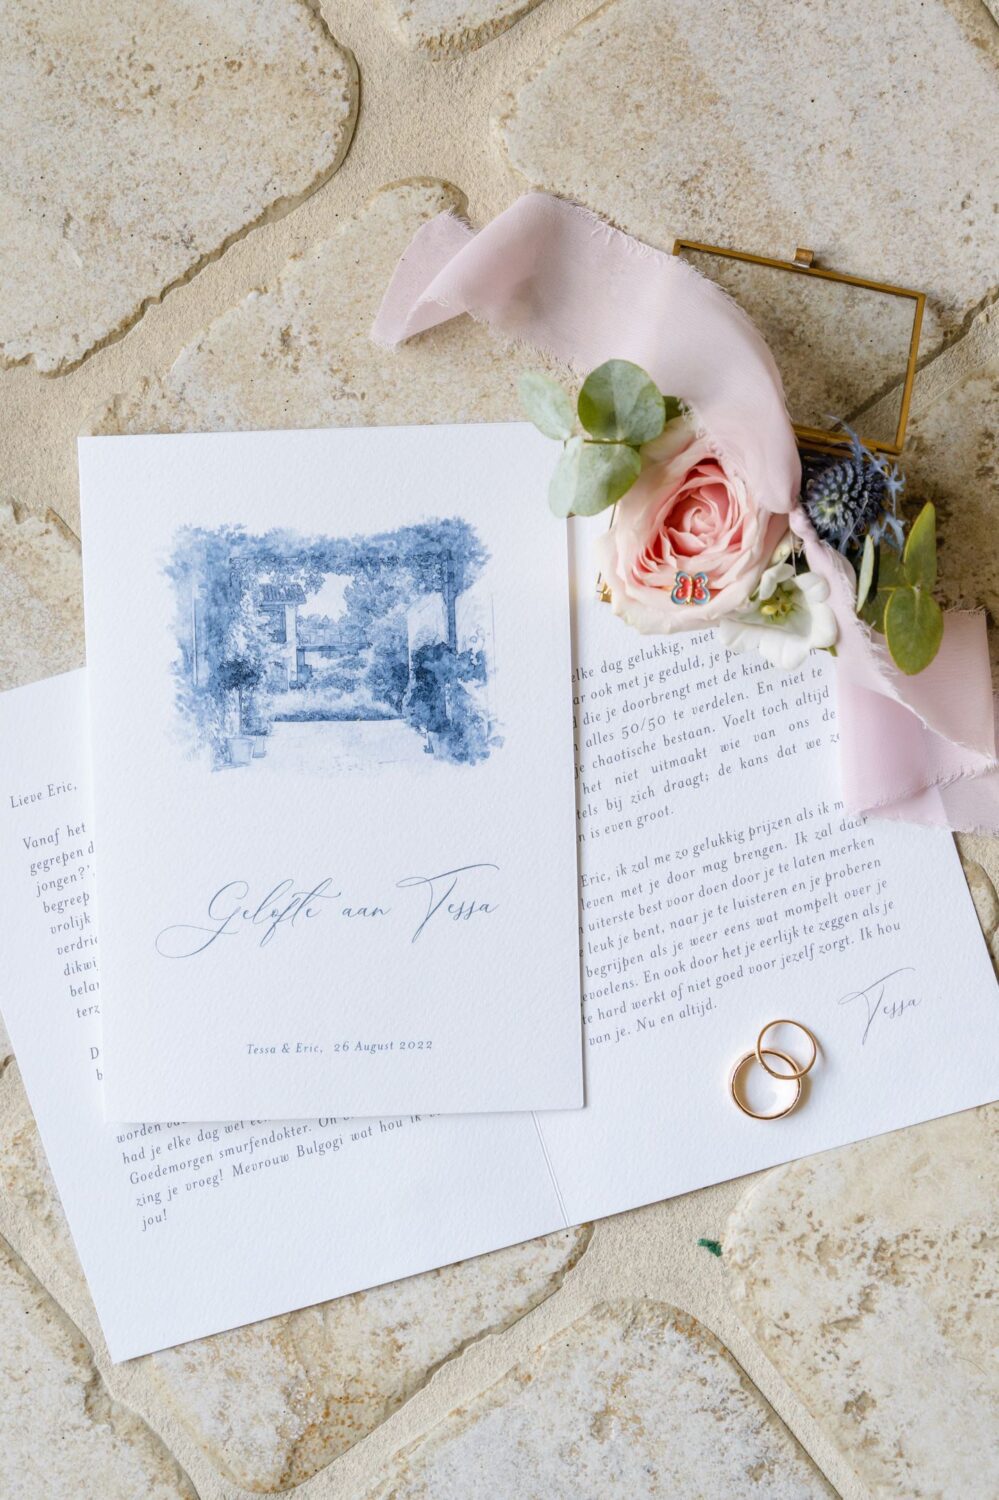 Gelofte aan Tessa
Tessa & Eric, 26 August 2022
Lieve Eric,
Vanaf het
gegrepen d
jongen?'
begreep
vrolijk
verdrie
dikwij
bela
terz
D
b
worden
had je elke dag wel
Goedemorgen smurfendokter. Oh
zing je vroeg! Mevrouw Bulgogi wat hou ik
jou!
elke dag gelukkig, niet
ar ook met je geduld, je
die je doorbrengt met de kinde
n alles 50/50 te verdelen. En niet te
je chaotische bestaan. Voelt toch altijd
het niet uitmaakt wie van ons de
tels bij zich draagt; de kans dat we ze
n is even groot.
Eric, ik zal me zo gelukkig prijzen als ik m
leven met je door mag brengen. Ik zal daar
uiterste best voor doen door je te laten merken
e leuk je bent, naar je te luisteren en je proberen
begrijpen als je weer eens wat mompelt over je
evoelens. En ook door het je eerlijk te zeggen als je
te hard werkt of niet goed voor jezelf zorgt. Ik hou
van je. Nu en altijd.
Tessa